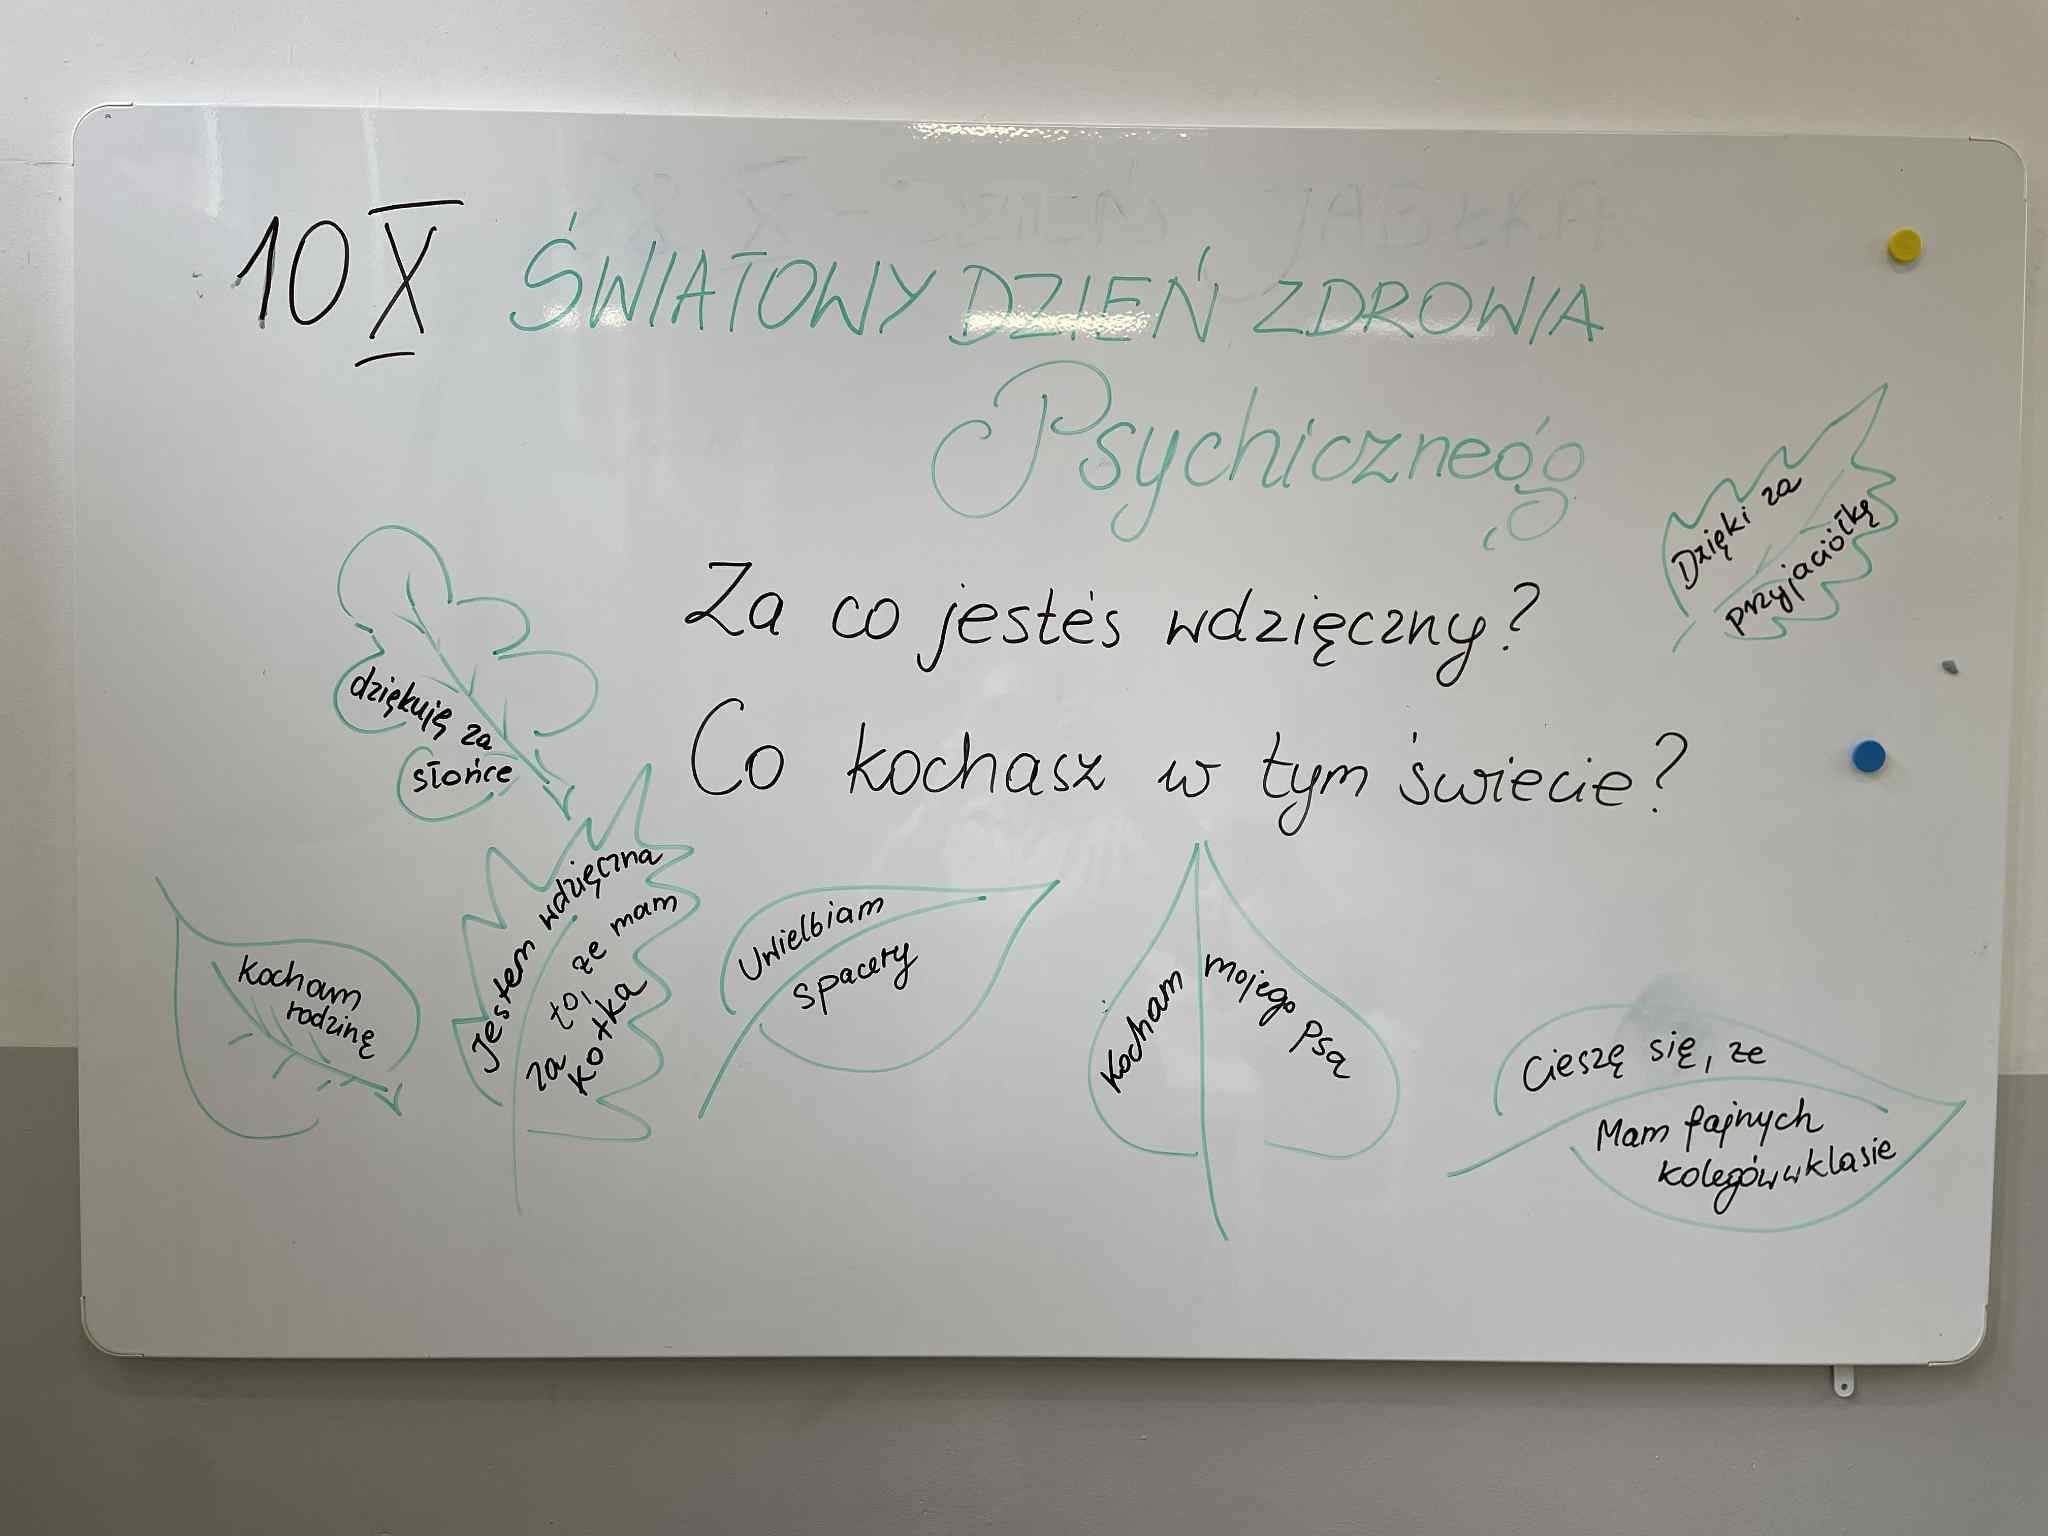 10 X ŚWIATOWY DZIEŃ ZDROWIA
Psychicznego
Za co jesteś wdzięczny?
Co kochasz w tym świecie?
Dzięki za
przyjaciółkę
dziękuję za
słońce
Kocham
rodzinę
Jestem wdzięczna
za to, że mam
kotka
Uwielbiam
spacery
Kocham
mojego psa
Cieszę się, że
Mam fajnych
kolegów w klasie